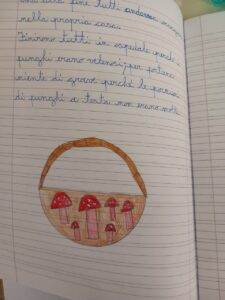 fine tutti andarono
nella propria casa.
Finirono tutti in ospedale perché i
funghi erano velenosi, per fortuna
niente di grave perché le porzioni
di funghi a testa non erano molte